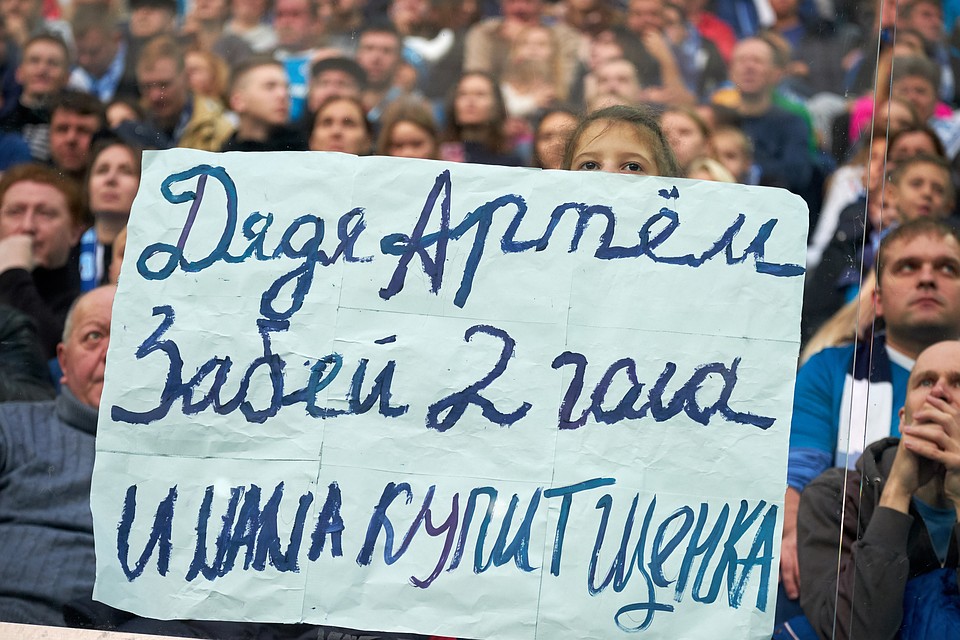 Дядя Артём
Забей 2 гола
И МАМА КУПИТ ЩЕНКА